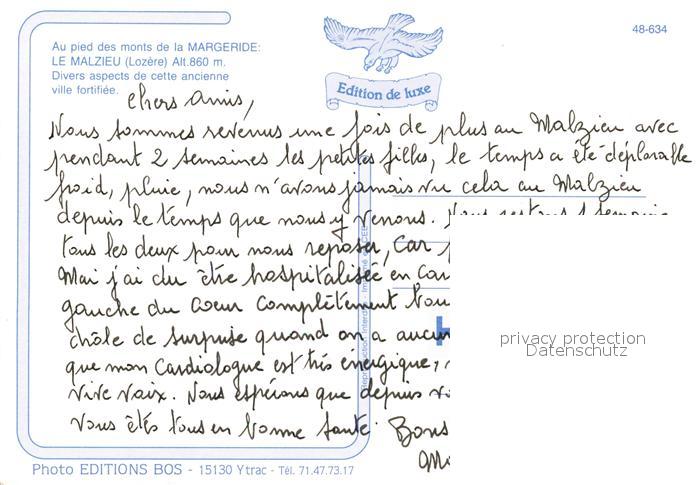 48-634
Au pied des monts de la MARGERIDE:
LE MALZIEU (Lozère) Alt.860 m.
Divers aspects de cette ancienne
ville fortifiée.
Edition de luxe
Chers Amis,
Nous sommes revenus une fois de plus au Malzieu avec
pendant 2 semaines les petites filles, le temps a été déplorable
froid, pluie, nous n'avons jamais vu cela au Malzieu
depuis le temps que nous y venons. Nous restons 1 semaine
tous les deux pour nous reposer, Car
Mai j'ai du être hospitalisée en
gauche du Coeur Complètement
chôle de surprise quand on a aucun
que mon Cardiologue est très énergique,
vive voix. Nous espérons que depuis
vous êtes tous en bonne santé. Bons
privacy protection
Datenschutz
Photo EDITIONS BOS - 15130 Ytrac - Tél. 71.47.73.17